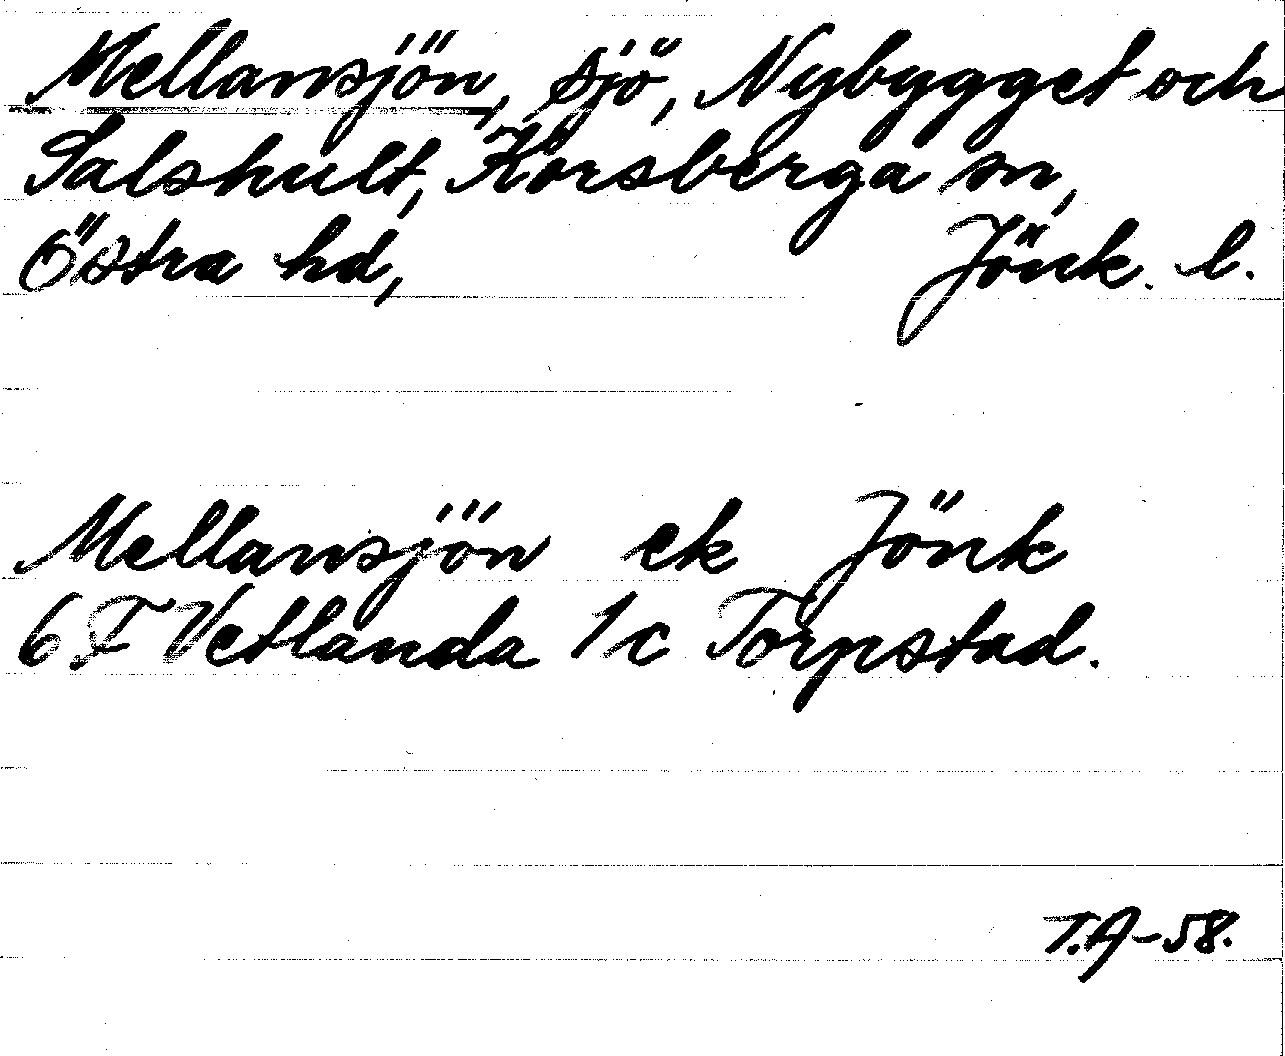 Mellansjön, sjö, Nybygget och
Salshult, Korsberga sn,
Östra hd, Jönk. l.
Mellansjön ek Jönk
6 F Vetlanda 1c Torpstad.
T.A-58.